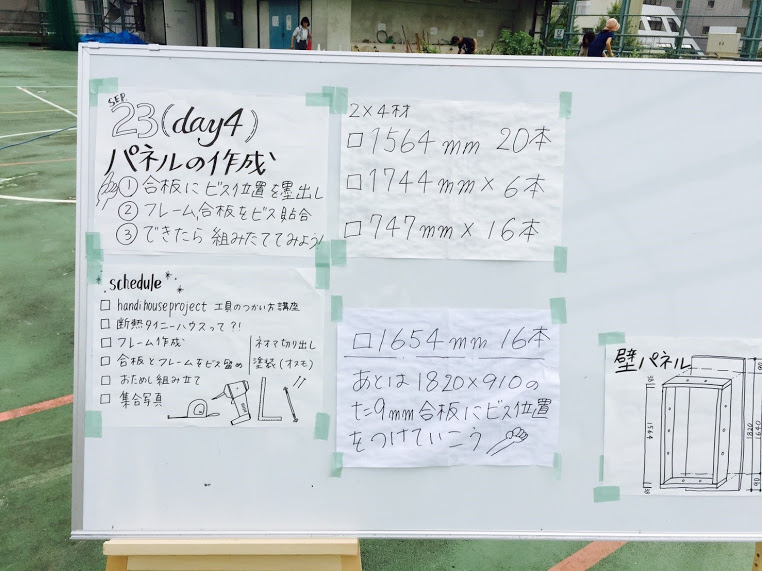 SEP
23(day4)
パネルの作成
① 合板にビス位置を墨出し
② フレーム,合板をビス貼合
③ できたら 組みたててみよう!
schedule
□ handihouseproject 工具のつかい方講座
□ 断熱タイニーハウスって?!
□ フレーム作成
□ 合板とフレームをビス留め
□ おためし組み立て
□ 集合写真
ネオマ切り出し
塗装(オスモ)
2×4材
□1564mm 20本
□1744mm× 6本
□747mm×16本
□1654mm 16本
あとは1820×910の
た9mm合板にビス位置
をつけていこう
壁パネル
1564
1820
1640
90
90